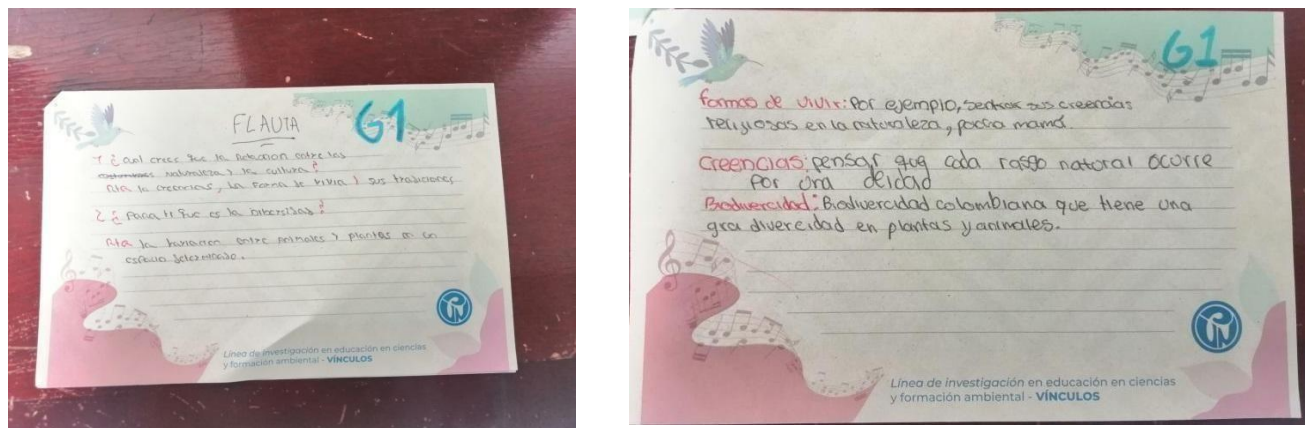 FLAUTA
G1
1 ¿ cual crees que la relacion entre las
naturaleza y la cultura?
Rta la creencias, la forma de vivir y sus tradiciones
2 ¿ Para ti que es la
Rta la variacion entre animales y plantas en un
espacio determinado.
Línea de investigación en educación en ciencias
y formación ambiental - VÍNCULOS
G1
formas de vivir: Por ejemplo, sus creencias
religiosas en la naturaleza, pacha mama.
Creencias: pensar que cada rasgo natural ocurre
por una deidad
Biodivercidad: Biodivercidad colombiana que tiene una
gra divercidad en plantas y animales.
Línea de investigación en educación en ciencias
y formación ambiental - VÍNCULOS